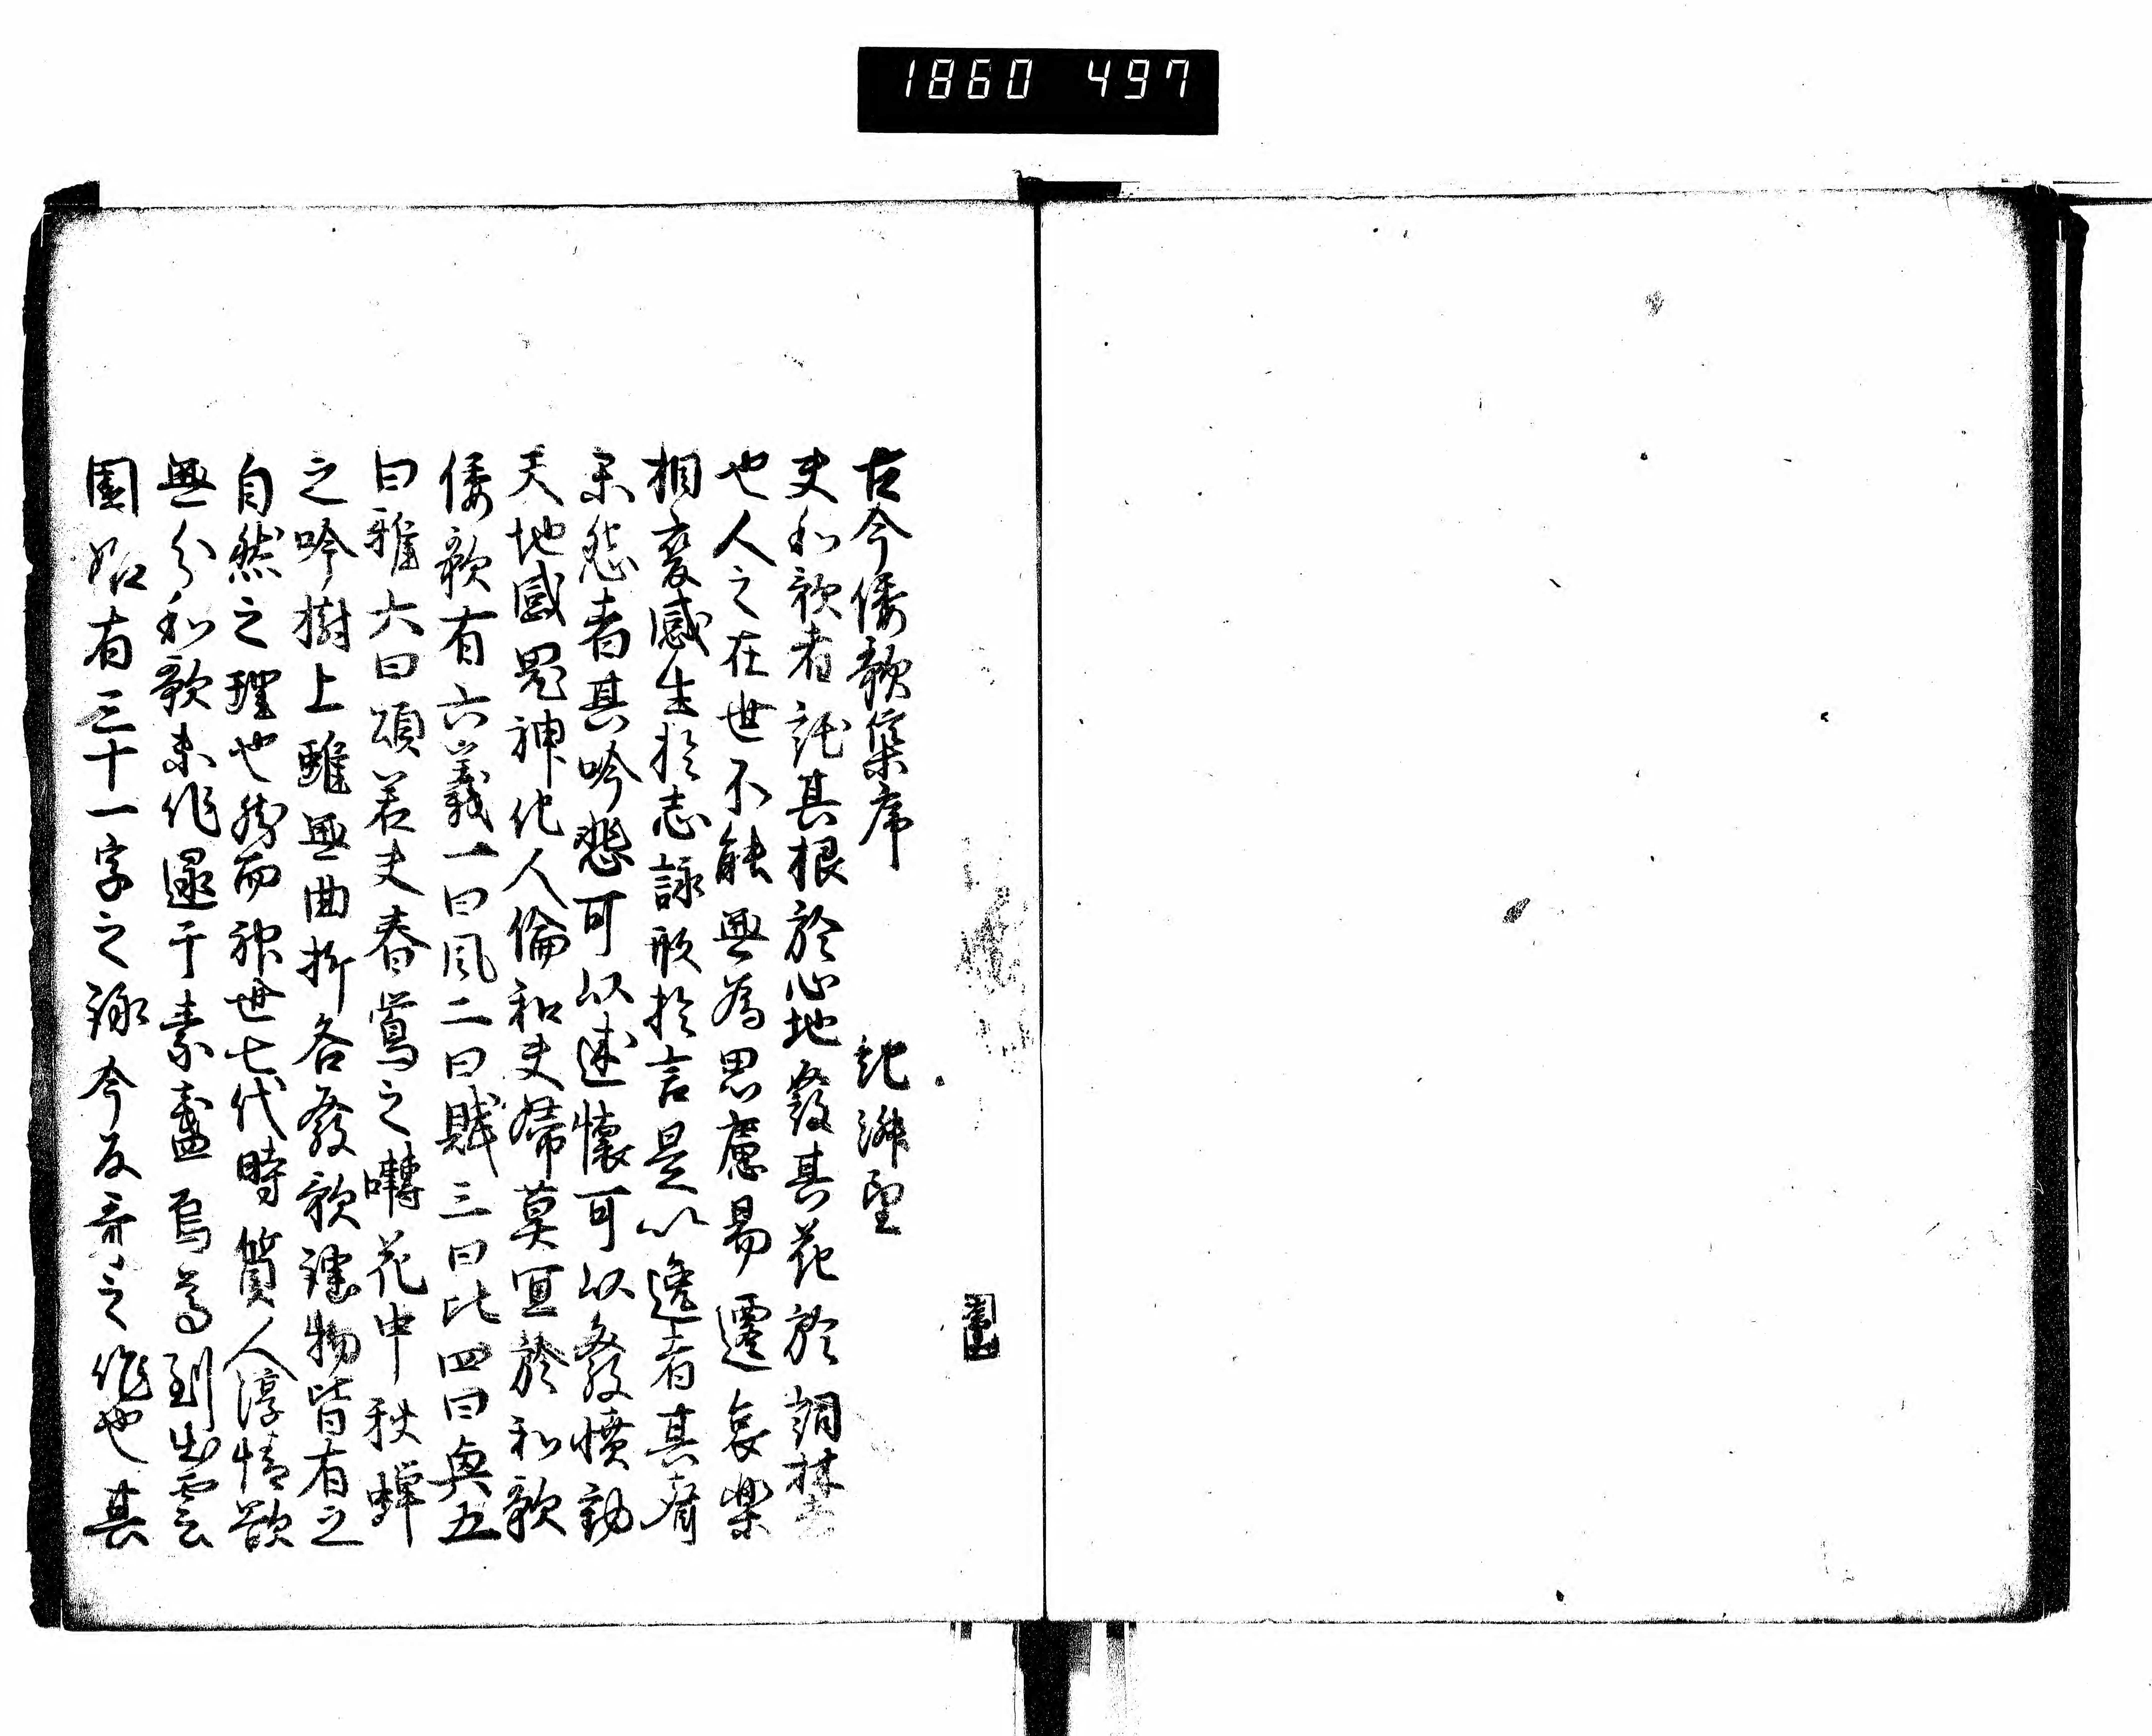 1860 497
古今倭歌集序 紀淑望
夫和歌者託其根於心地發其花於詞林者
也人之在世不能無為思慮易遷哀樂
相変感生於志詠形於言是以逸者其声
楽怨者其吟悲可以述懐可以發憤動
天地感鬼神化人倫和夫婦莫宜於和歌
倭歌有六義一曰風二曰賦三曰比四曰興五
曰雅六曰頌若夫春鶯之囀花中秋蟬
之吟樹上雖無曲折各發歌謡物皆有之
自然之理也然而神世七代時質人淳情欲
無分和歌未作逮于素盞烏尊到出雲
國始有三十一字之詠今反哥之作也其